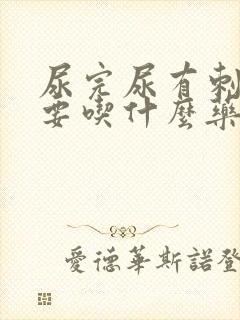 尿完尿有刺
要喫什麼藥
愛德華斯諾登